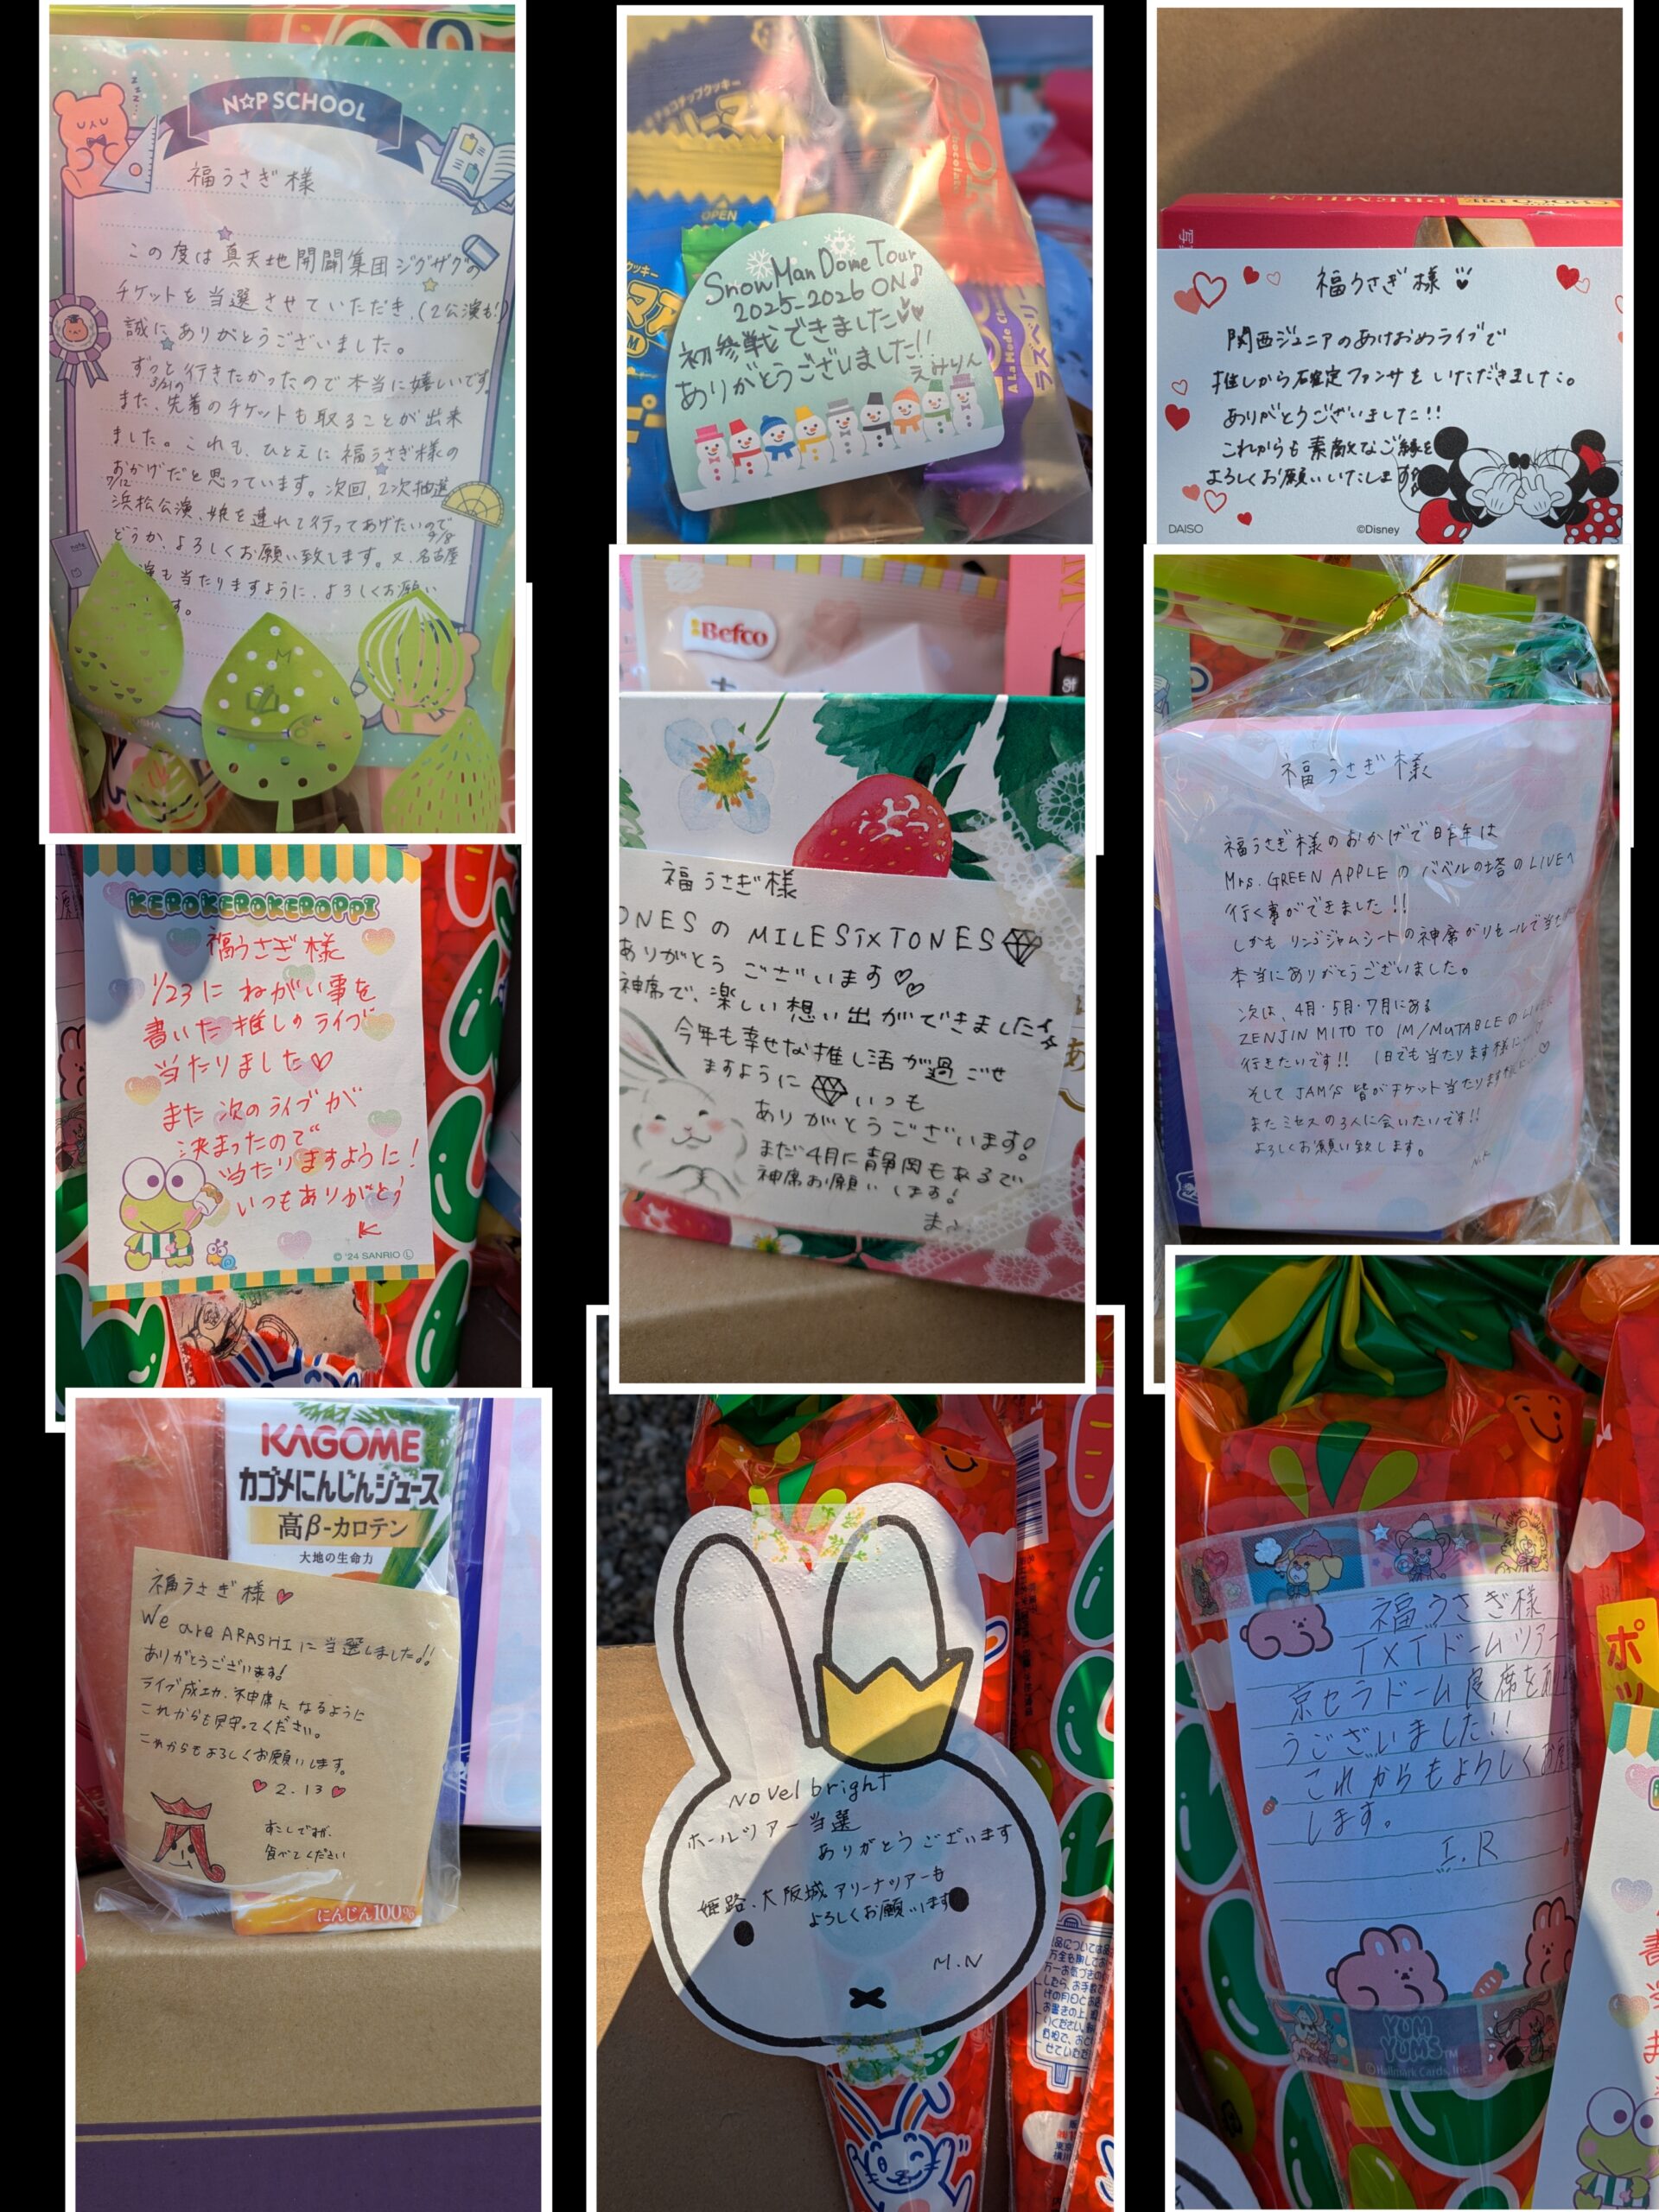 N☆P SCHOOL
福うさぎ様
この度は真天地開闢集団ジグザグの
チケットを当選させていただき、(2公演も!)
誠にありがとうございました。
ずっと行きたかったので本当に嬉しいです。
3/21の
また、先着のチケットも取ることが出来
ました。これも、ひとえに福うさぎ様の
おかげだと思っています。次回、2次抽選
7/12
浜松公演、娘を連れて行ってあげたいので
どうか、よろしくお願い致します。又、名古屋
9/8
も当たりますように、よろしくお願い
す。
OPEN
LOOK
A La Mode
ラズベリ
Snow Man Dome Tour
2025-2026 ON♪
初参戦できました
ありがとうございました!!
えみりん
PREMIUM
福うさぎ様
関西ジュニアのあけおめライブで
推しから確定ファンサをいただきました。
ありがとうございました!!
これからも素敵なご縁を
よろしくお願いいたします
DAISO
©Disney
KEROKEROKEROPPI
福うさぎ様
1/23に ねがい事を
書いた推しのライブ
当たりました♡
また次のライブが
決まったので
当たりますように!
いつもありがとう
K
© '24 SANRIO Ⓛ
Befco
福うさぎ様
ONESのMILESixTONES
ありがとうございます♡♡
神席で、楽しい想い出ができました
今年も幸せな推し活が過ごせ
ますように いつも
ありがとうございます!
まだ4月に静岡もあるで
神席お願いします!
福うさぎ様
福うさぎ様のおかげで昨年は
Mrs. GREEN APPLEの バベルの塔のLIVEへ
行く事ができました!!
しかも リンゴジャムシートの神席がリセールで当た
本当にありがとうございました。
次は、4月・5月・7月にある
ZENJIN MITO TO IM/MUTABLEのLIVE
行きたいです!! 1日でも当たります様に
そして JAM'S 皆がチケット当たります
またミセスの3人に会いたいです!!
よろしくお願い致します。
N.K
KAGOME
カゴメにんじんジュース
高β-カロテン
大地の生命力
福うさぎ様♥
We are ARASHIに当選しました!!
ありがとうございます!
ライブ成功、神席になるように
これからも見守ってください。
これからもよろしくお願いします。
♥2.13♥
すこしですが、
食べてください
にんじん100%
Novelbright
ホールツアー当選
ありがとうございます
姫路、大阪城アリーナツアーも
よろしくお願います
M.N
福うさぎ様
TXTドームツアー
京セラドーム良席をあり
うございました!!
これからもよろしくお願
します。
I.R
YUM
YUMS™
©Hallmark Cards, Inc.
ポ
ッ